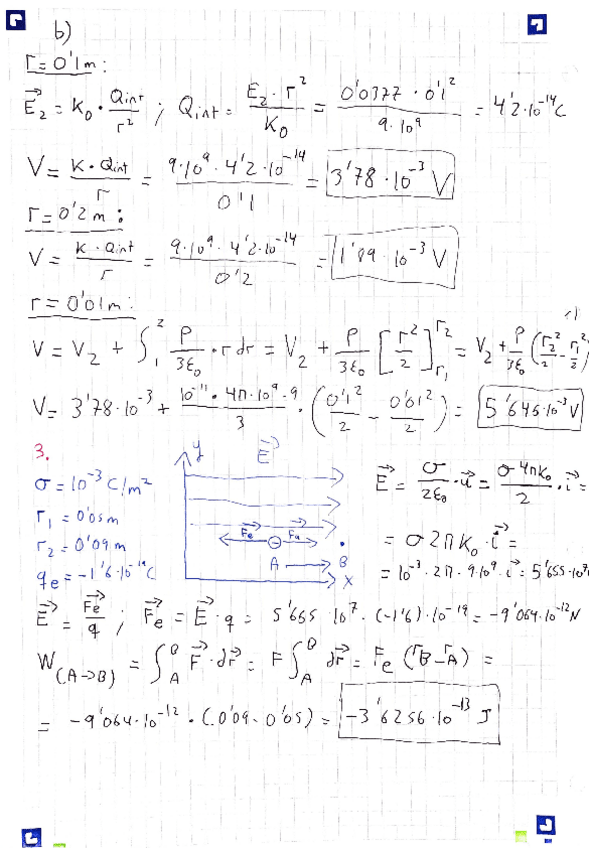 b)
r = 0'1m:
E₂ = K₀ · Qint/r² ; Qint = E₂·r²/K₀ = 0'0377 · 0'1²/9·10⁹ = 4'2·10⁻¹⁴C
V = K·Qint/r = 9·10⁹·4'2·10⁻¹⁴/0'1 = 3'78·10⁻³ V
r = 0'2 m:
V = K·Qint/r = 9·10⁹·4'2·10⁻¹⁴/0'2 = 1'89·10⁻³ V
r = 0'01m:
V = V₂ + ∫₁² ρ/3ε₀ · r dr = V₂ + ρ/3ε₀ [r²/2]r₁r₂ = V₂ + ρ/3ε₀ (r₂²/2 - r₁²/2)
V = 3'78·10⁻³ + 10⁻¹¹·4π·10⁹·9/3 · (0'1²/2 - 0'01²/2) = 5'645·10⁻³V
3.
σ = 10⁻³ C/m²
r₁ = 0'05m
r₂ = 0'09m
qe = -1'6·10⁻¹⁹C
y E
Fe Fa
A B
x
E = σ/2ε₀ · u = σ4πK₀/2 · i =
= σ2πK₀ · i =
= 10⁻³·2π·9·10⁹·i = 5'655·10⁷
E = Fe/q ; Fe = E·q = 5'665·10⁷·(-1'6)·10⁻¹⁹ = -9'064·10⁻¹²N
W(A→B) = ∫AB F·dr = F∫AB dr = Fe (rB-rA) =
= -9'064·10⁻¹² · (0'09-0'05) = -3'6256·10⁻¹³ J